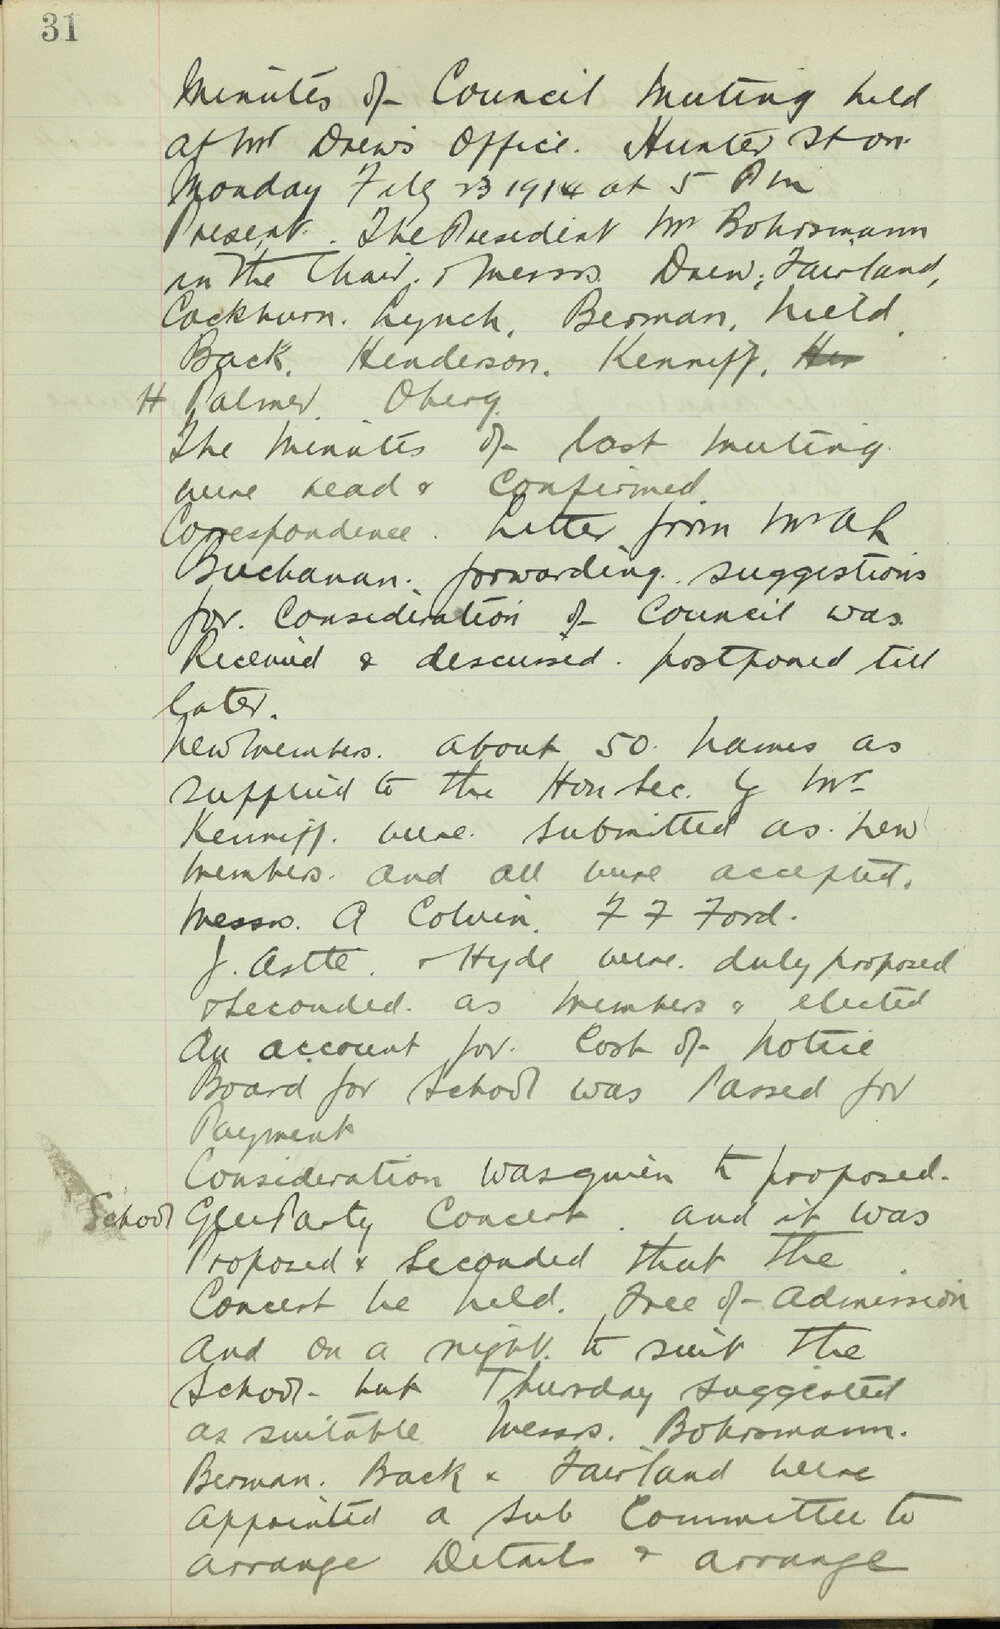 31
Minutes of Council Meeting held
at Mr Drew's Office. Hunter St on
Monday Feby 23 1914 at 5 Pm
Present. The President Mr Bohrsmann
in the Chair. & Messrs Drew, Fairland,
Cockburn. Lynch, Berman, Nield,
Back, Henderson, Kenniff, Hen
H Palmer, Oberg
The Minutes of last Meeting
were read & Confirmed
Correspondence. Letter from Mr
Buchanan. forwarding suggestions
for Consideration of Council was
Received & discussed. postponed till
later.
New Members. about 50. names as
supplied to the Hon Sec. by Mr
Kenniff. were submitted as. new
members. and all were accepted.
Messrs. A Colvin. F F Ford.
J. Astte. & Hyde were. duly proposed
& seconded. as Members & elected
An account for. Cost of Notice
Board for School was Passed for
Payment
Consideration was given to proposed.
School Glee Party Concert. and it was
Proposed & Seconded that the
Concert be held. Free of Admission
and on a night. to suit the
School - but Thursday suggested
as suitable Messrs. Bohrsmann.
Berman. Back & Fairland were
appointed a Sub Committee to
arrange Details & arrange